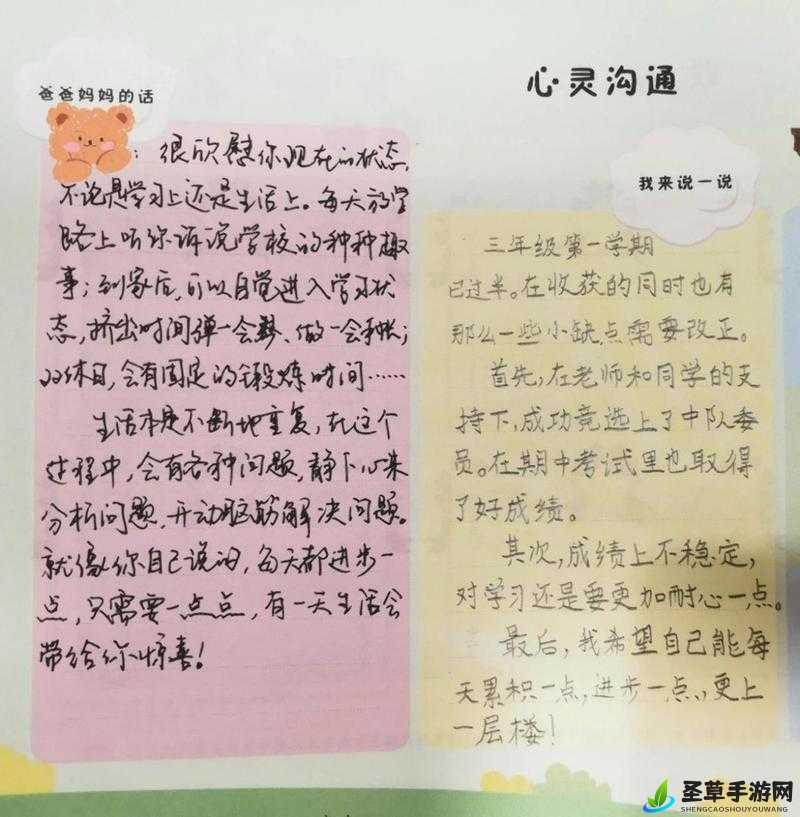 心灵沟通
爸爸妈妈的话
：很欣慰你现在的状态，
不论是学习上还是生活上。每天放学
路上听你诉说学校的种种趣
事；到家后，可以自觉进入学习状
态，挤出时间弹一会琴、做一会手帐；
双休日，会有固定的锻炼时间……
生活本是不断地重复，在这个
过程中，会有各种问题，静下心来
分析问题，开动脑筋解决问题。
就像你自己说的，每天都进步一
点，只需要一点点，有一天生活会
带给你惊喜！
我来说一说
三年级第一学期
已过半。在收获的同时也有
那么一些小缺点需要改正。
首先，在老师和同学的支
持下，成功竞选上了中队委
员。在期中考试里也取得
了好成绩。
其次，成绩上不稳定，
对学习还是要更加耐心一点。
最后，我希望自己能每
天累积一点，进步一点，更上
一层楼！
圣草手游网
SHENGCAOSHOUYOUWANG